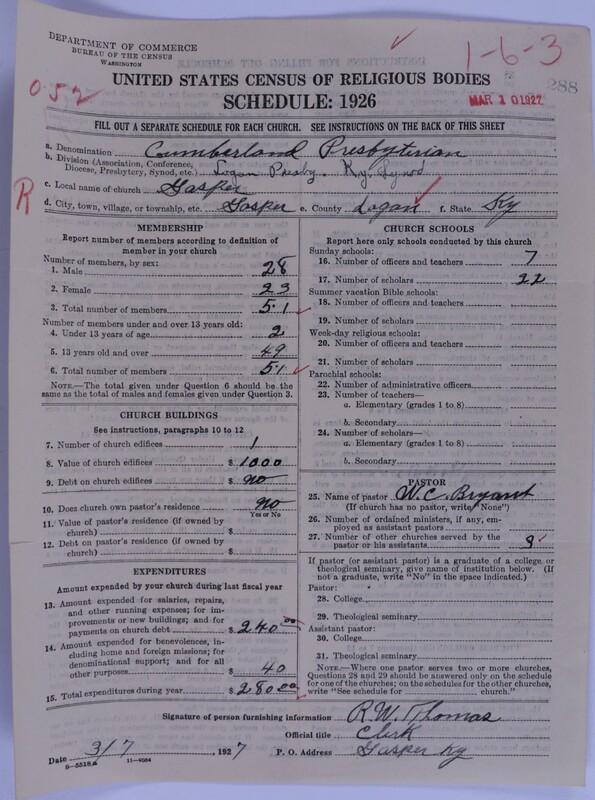 DEPARTMENT OF COMMERCE
BUREAU OF THE CENSUS
WASHINGTON
1-6-3
288
052
MAR 10 1927
UNITED STATES CENSUS OF RELIGIOUS BODIES
SCHEDULE: 1926
FILL OUT A SEPARATE SCHEDULE FOR EACH CHURCH. SEE INSTRUCTIONS ON THE BACK OF THIS SHEET
a. Denomination Cumberland Presbyterian
b. Division (Association, Conference, Diocese, Presbytery, Synod, etc.) Logan Presby. Ky. Synod
R
c. Local name of church Gasper
d. City, town, village, or township, etc. Gasper e. County Logan f. State Ky
MEMBERSHIP
Report number of members according to definition of
member in your church
Number of members, by sex:
1. Male 28
2. Female 23
3. Total number of members 51
Number of members under and over 13 years old:
4. Under 13 years of age 2
5. 13 years old and over 49
6. Total number of members 51
NOTE.—The total given under Question 6 should be the
same as the total of males and females given under Question 3.
CHURCH BUILDINGS
See instructions, paragraphs 10 to 12
7. Number of church edifices 1
8. Value of church edifices $ 1000
9. Debt on church edifices $ no
10. Does church own pastor's residence no
Yes or No
11. Value of pastor's residence (if owned by
church) $
12. Debt on pastor's residence (if owned by
church) $
EXPENDITURES
Amount expended by your church during last fiscal year
13. Amount expended for salaries, repairs,
and other running expenses; for im-
provements or new buildings; and for
payments on church debt $ 240.00
14. Amount expended for benevolences, in-
cluding home and foreign missions; for
denominational support; and for all
other purposes $ 40
15. Total expenditures during year $ 280.00
CHURCH SCHOOLS
Report here only schools conducted by this church
Sunday schools:
16. Number of officers and teachers 7
17. Number of scholars 22
Summer vacation Bible schools:
18. Number of officers and teachers
19. Number of scholars
Week-day religious schools:
20. Number of officers and teachers
21. Number of scholars
Parochial schools:
22. Number of administrative officers
23. Number of teachers—
a. Elementary (grades 1 to 8)
b. Secondary
24. Number of scholars—
a. Elementary (grades 1 to 8)
b. Secondary
PASTOR
25. Name of pastor W. C. Bryant
(If church has no pastor, write "None")
26. Number of ordained ministers, if any, em-
ployed as assistant pastors
27. Number of other churches served by the
pastor or his assistants
If pastor (or assistant pastor) is a graduate of a college or
theological seminary, give name of institution below. (If
not a graduate, write "No" in the space indicated.)
Pastor:
28. College
29. Theological seminary
Assistant pastor:
30. College
31. Theological seminary
NOTE.—Where one pastor serves two or more churches,
Questions 28 and 29 should be answered only on the schedule
for one of the churches; on the schedules for the other churches,
write "See schedule for church."
Signature of person furnishing information R.W. Thomas
Official title Clerk
Date 3/7, 1927 P. O. Address Gasper Ky